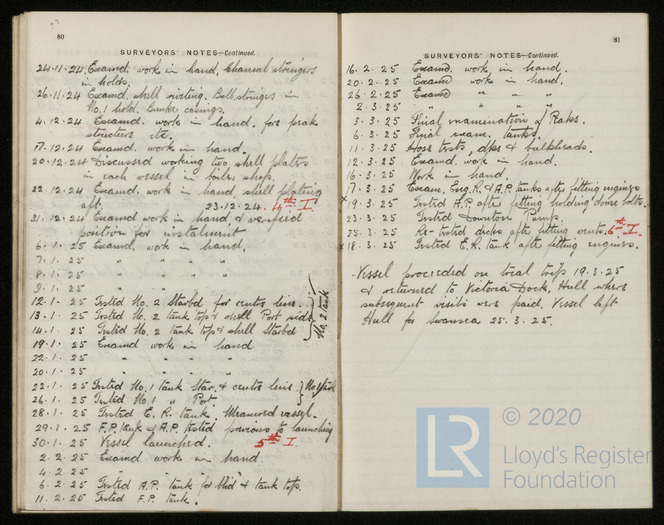 80
SURVEYORS' NOTES—Continued.
24.11.24 Examd. work in hand. Channel stringers
in holds.
26.11.24 Examd. shell riveting. Bulb stringers in
No. 1 hold. Bunker casings.
4.12.24 Examd. work in hand. fore peak
structure etc.
17.12.24 Examd. work in hand.
20.12.24 Discussed working two shell plates
in each vessel in boiler shop.
22.12.24 Examd. work in hand, shell plating
aft. 23.12.24. 4th I.
31.12.24 Examd work in hand & verified
position for instalment
6.1.25 Examd. work in hand.
7.1.25 " " " "
8.1.25 " " " "
9.1.25 " " " "
12.1.25 Tested No. 2 Starbd for centre line.
13.1.25 Tested No. 2 tank top & shell Port side
14.1.25 Tested No. 2 tank top & shell Starbd
No. 2 tank
19.1.25 Examd work in hand
22.1.25 " " " "
20.1.25 " " " "
22.1.25 Tested No. 1 tank Star. & centre line No 1 tank
26.1.25 Tested No. 1 " Port.
28.1.25 Tested E.R. tank. Measured vessel.
29.1.25 F.P. tank & A.P. tested previous to launching
30.1.25 Vessel launched. 5th I
2.2.25 Examd work in hand.
4.2.25 " " " "
6.2.25 Tested A.P. tank for blkd & tank top.
11.2.25 Tested F.P. tank.
81
SURVEYORS' NOTES—Continued.
16.2.25 Examd. work in hand.
20.2.25 Examd work in hand.
26.2.25 Examd " " "
2.3.25 " " " "
3.3.25 Final examination of Peaks.
6.3.25 Final exam. tanks.
11.3.25 Hose tests, dks & bulkheads.
12.3.25 Examd. work in hand.
16.3.25 Work in hand.
17.3.25 Exam. Eng. R. & A.P. tanks after fitting engines
x 19.3.25 Tested A.P. after fitting holding down bolts.
23.3.25 Tested Downton Pump.
25.3.25 Re-tested decks after fitting vents. 6th I.
x 18.3.25 Tested E.R. tank after fitting engines.
Vessel proceeded on trial trip 19.3.25
& returned to Victoria Dock, Hull where
subsequent visits were paid. Vessel left
Hull for Swansea 25.3.25.
LR © 2020
Lloyd's Register
Foundation